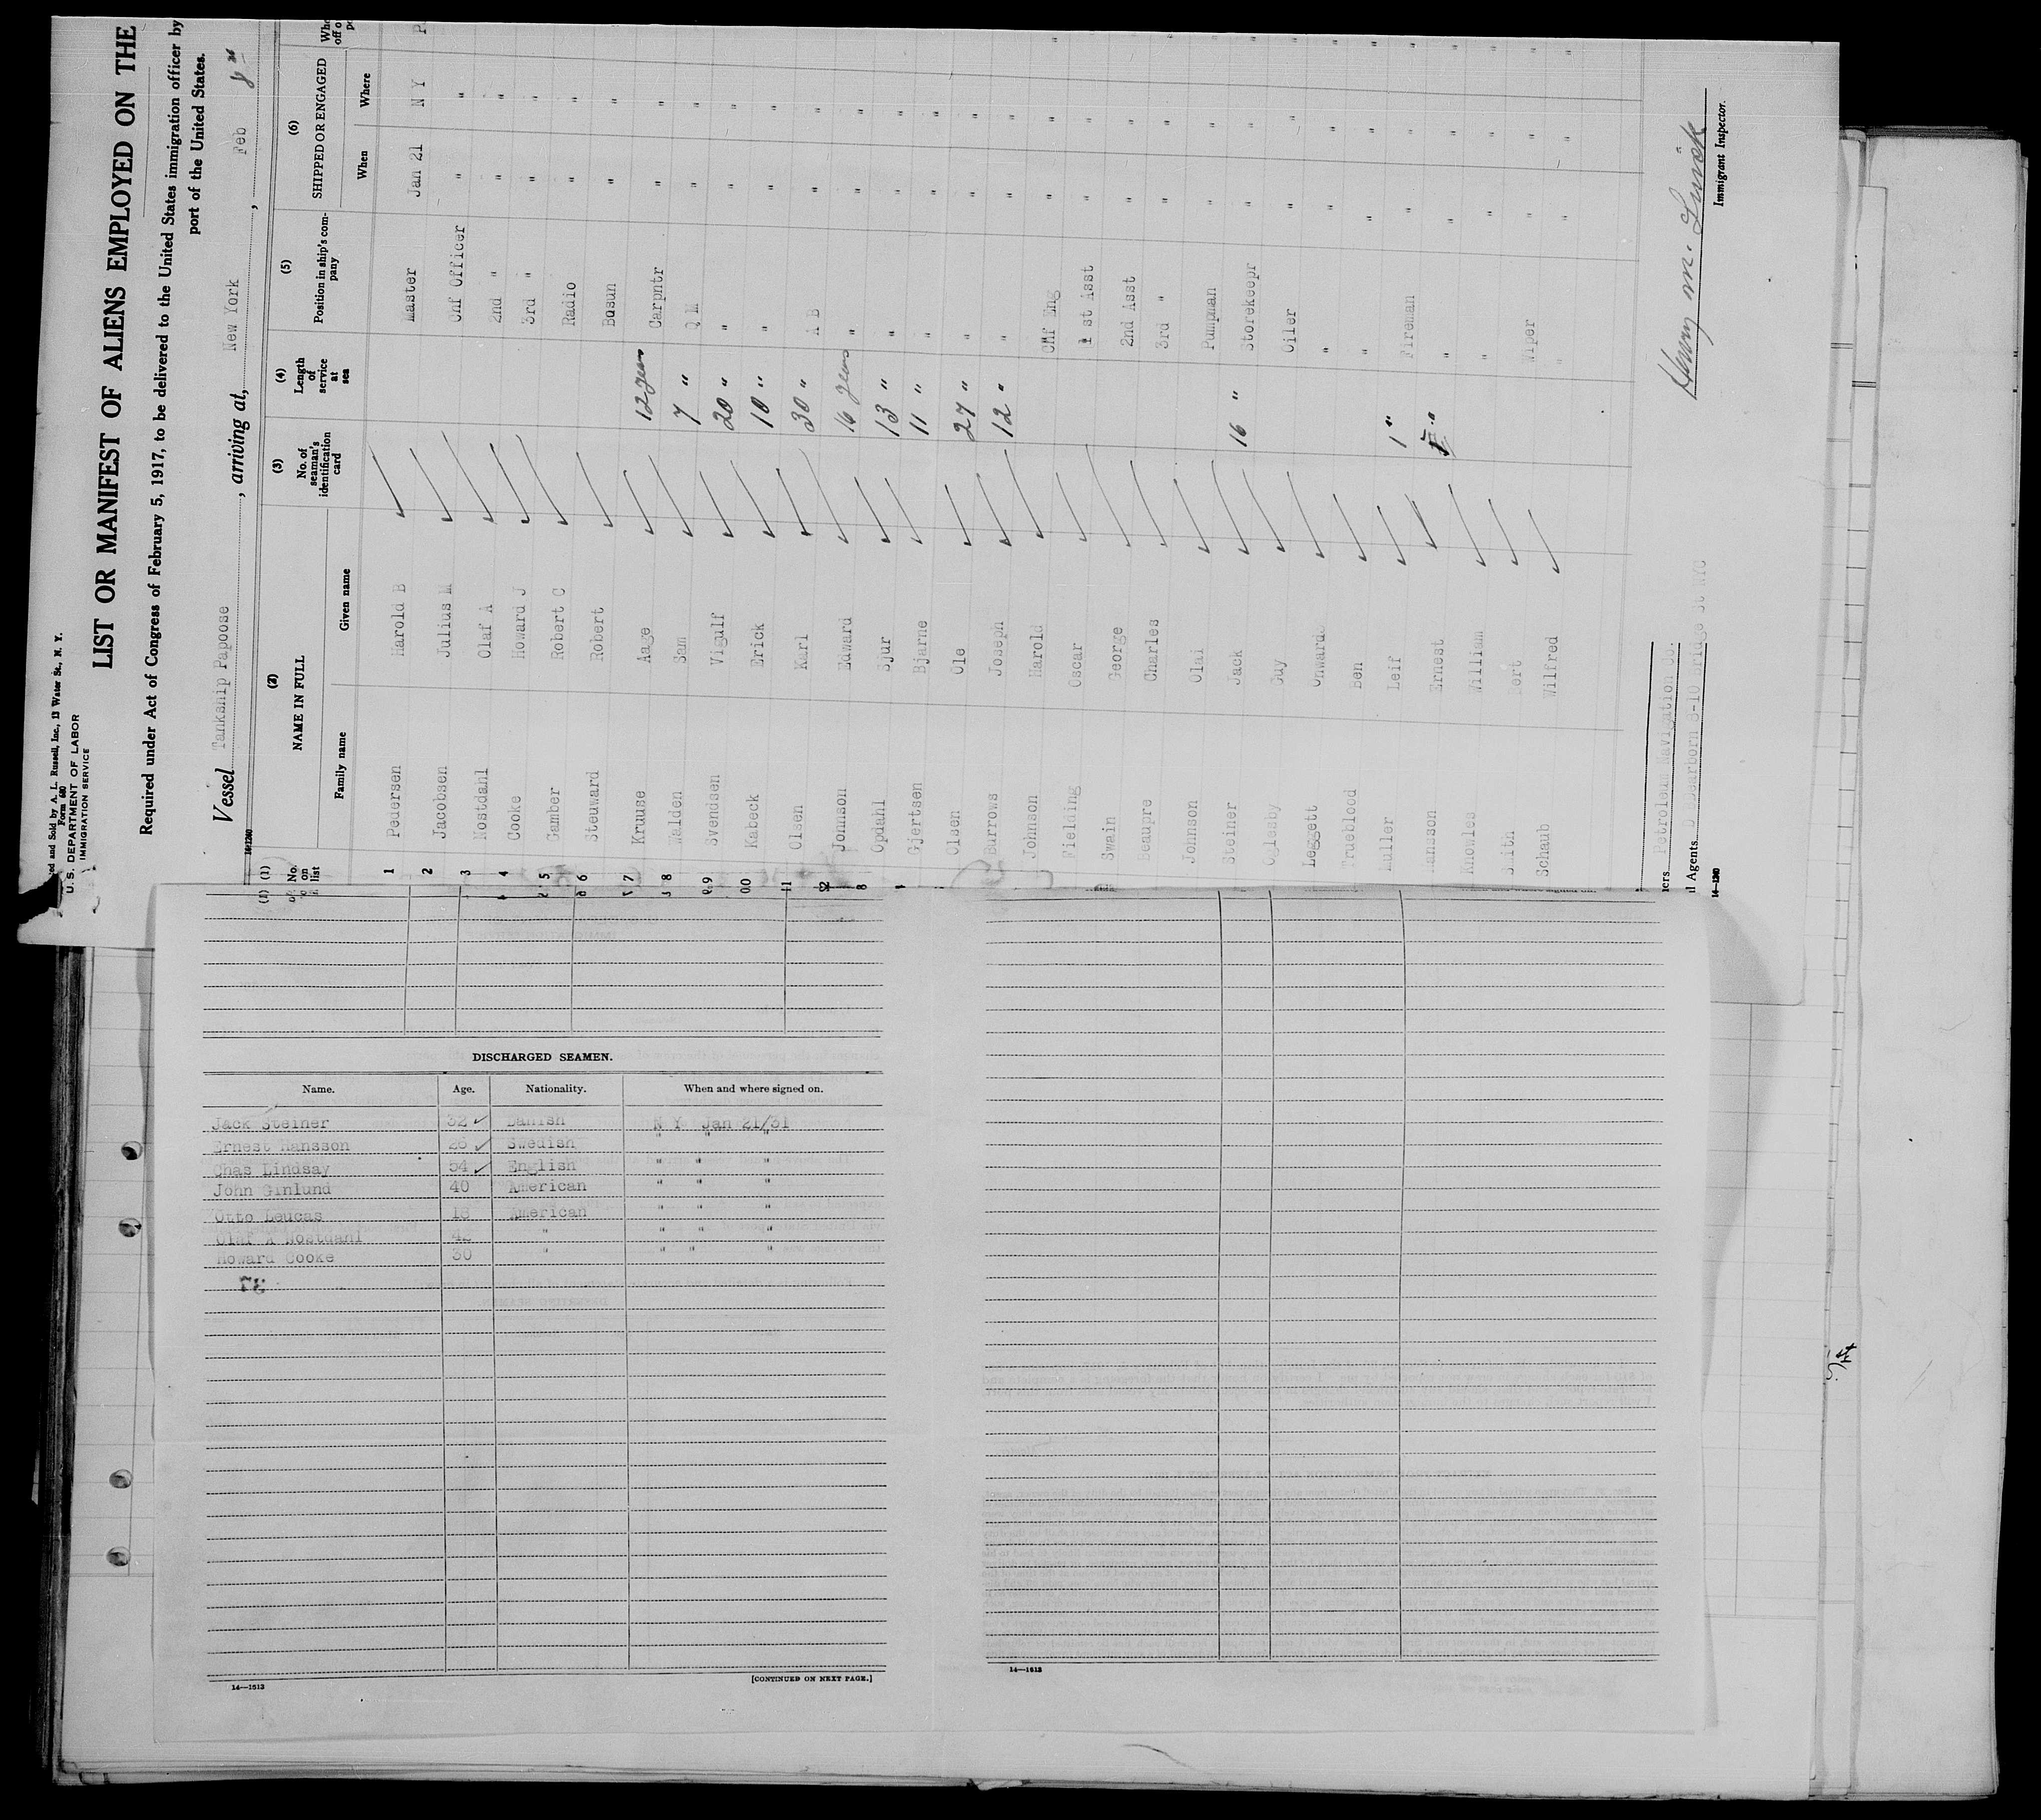 ed and Sold by A. L. Russell, Inc., 13 Water St., N. Y.
Form 680
U. S. DEPARTMENT OF LABOR
IMMIGRATION SERVICE
LIST OR MANIFEST OF ALIENS EMPLOYED ON THE
Required under Act of Congress of February 5, 1917, to be delivered to the United States immigration officer by
port of the United States.
Vessel Tankship Papoose, arriving at, New York, Feb 8th
(1) No. on list (2) NAME IN FULL (3) No. of seaman's identification card (4) Length of service at sea (5) Position in ship's company (6) SHIPPED OR ENGAGED
Family name Given name When Where
1 Pedersen Harold B Master Jan 21 N Y
2 Jacobsen Julius M Chf Officer " "
3 Nostdahl Olaf A 2nd " " "
4 Cooke Howard J 3rd " " "
5 Gamber Robert C Radio " "
6 Steuward Robert Bosun " "
7 Kruuse Aage 12 years Carpntr " "
8 Walden Sam 7 " Q M " "
9 Svendsen Vigulf 20 " " " "
Kabeck Erick 10 " " " "
11 Olsen Karl 30 " A B " "
Johnson Edward 16 years " " "
Opdahl Sjur 13 " " " "
Gjertsen Bjarne 11 " " " "
Olsen Ole 27 " " " "
Burrows Joseph 12 " " " "
Johnson Harold Chf Eng " "
Fielding Oscar 1 st Asst " "
Swain George 2nd Asst " "
Beaupre Charles 3rd " " "
Johnson Olai Pumpman " "
Steiner Jack 16 " Storekeepr " "
Oglesby Guy Oiler " "
Leggett Onward " " "
Trueblood Ben " " "
Muller Leif 1 " Fireman " "
Hansson Ernest " " "
Knowles William " " "
Smith Bert Wiper " "
Schaub Wilfred " " "
Petroleum Navigation Co.
l Agents D Dearborn 8-10 Bridge St NYC
14—1240
Immigrant Inspector.
DISCHARGED SEAMEN.
Name. Age. Nationality. When and where signed on.
Jack Steiner 32 Danish N Y Jan 21/31
Ernest Hansson 26 Swedish " " "
Chas Lindsay 54 English " " "
John Ginlund 40 American " " "
Otto Leucas 18 American " " "
Olaf A Nostdahl 42 " " " "
Howard Cooke 30 " " " "
37
14—1613
[CONTINUED ON NEXT PAGE.]
14—1613